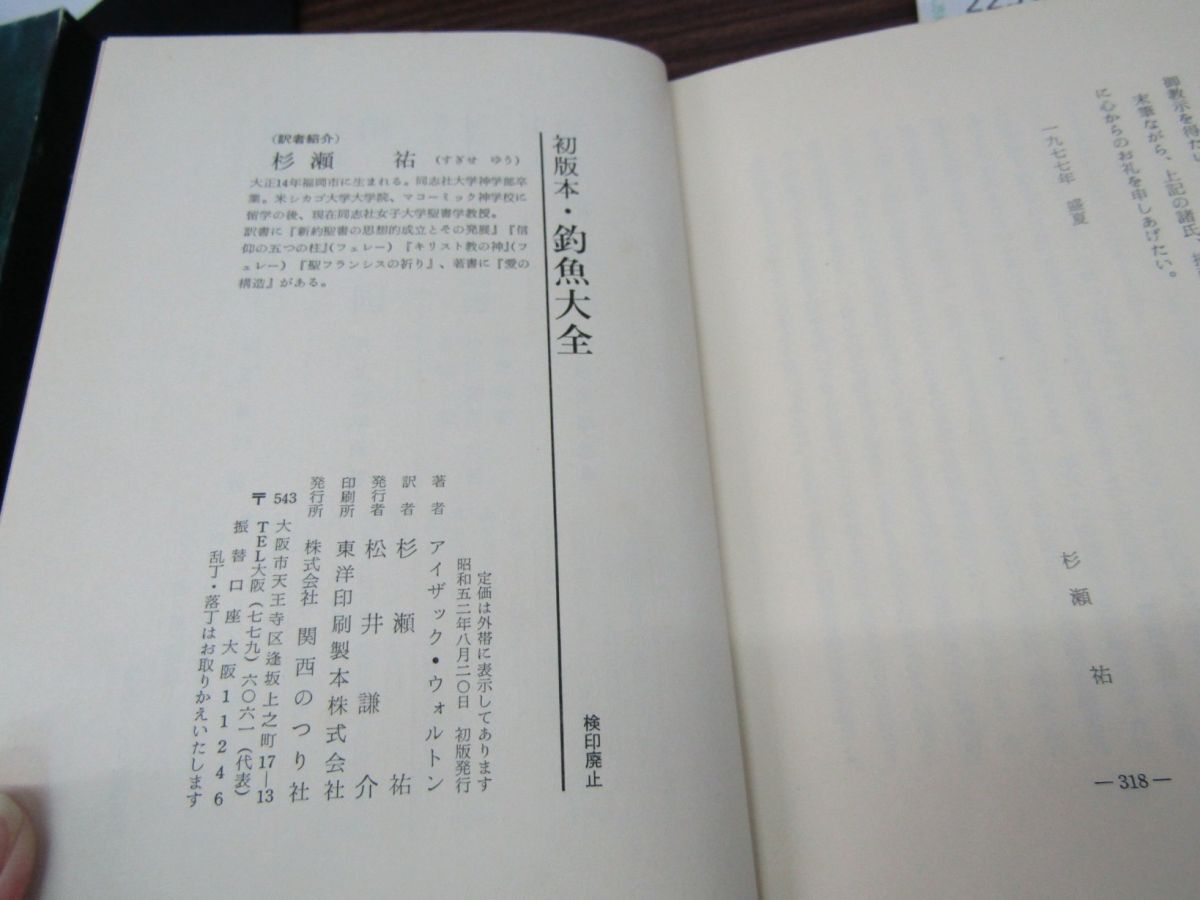 御教示を得たい
末筆ながら、上記の諸氏、
に心からのお礼を申しあげたい。
一九七七年　盛夏
杉瀬祐
―318―
初版本・釣魚大全
検印廃止
(訳者紹介)
杉瀬　祐 (すぎせ ゆう)
大正14年福岡市に生まれる。同志社大学神学部卒
業。米シカゴ大学大学院、マコーミック神学校に
留学の後、現在同志社女子大学聖書学教授。
訳書に『新約聖書の思想的成立とその発展』『信
仰の五つの柱』(フェレー)『キリスト教の神』(フ
ェレー)『聖フランシスの祈り』、著書に『愛の
構造』がある。
定価は外帯に表示してあります
昭和五二年八月二〇日　初版発行
著者　アイザック・ウォルトン
訳者　杉瀬祐
発行者　松井謙介
印刷所　東洋印刷製本株式会社
発行所　株式会社 関西のつり社
〒543 大阪市天王寺区逢坂上之町17―13
TEL大阪(七七九)六〇六一(代表)
振替口座大阪11246
乱丁・落丁はお取りかえいたします